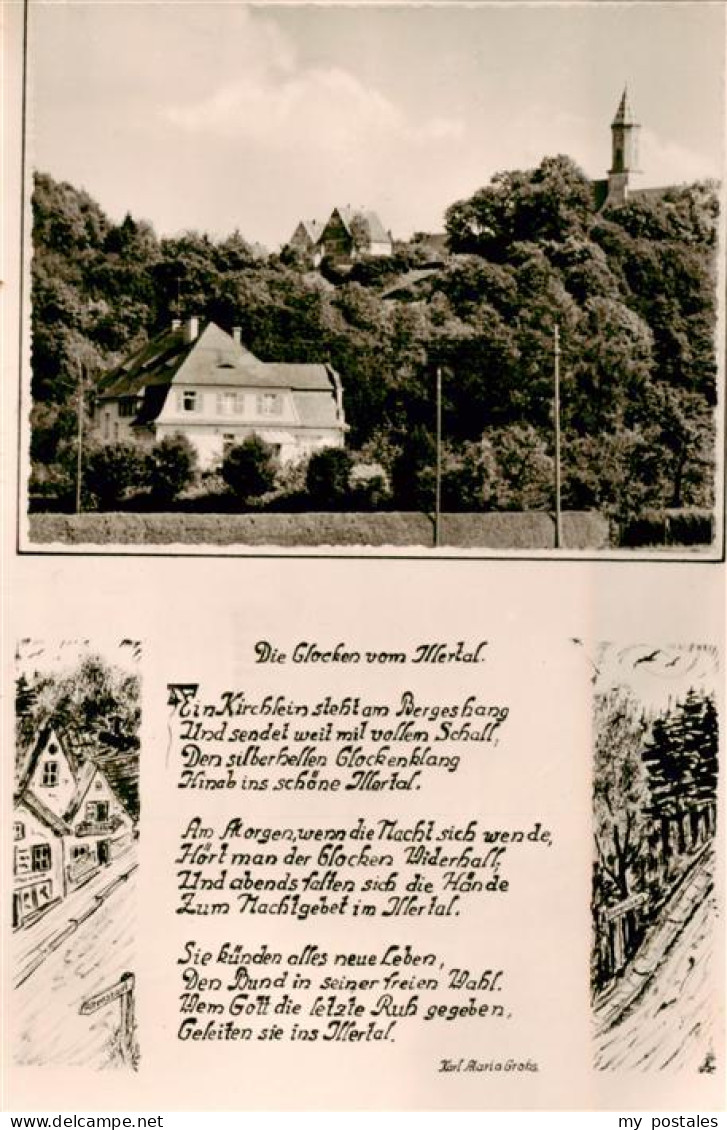 Die Glocken vom Illertal.
Ein Kirchlein steht am Bergeshang
Und sendet weit mit vollem Schall,
Den silberhellen Glockenklang
Hinab ins schöne Illertal.
Am Morgen, wenn die Nacht sich wende,
Hört man der Glocken Widerhall,
Und abends falten sich die Hände
Zum Nachtgebet im Illertal.
Sie künden alles neue Leben,
Den Bund in seiner freien Wahl.
Wem Gott die letzte Ruh gegeben,
Geleiten sie ins Illertal.
Karl Maria
my postales